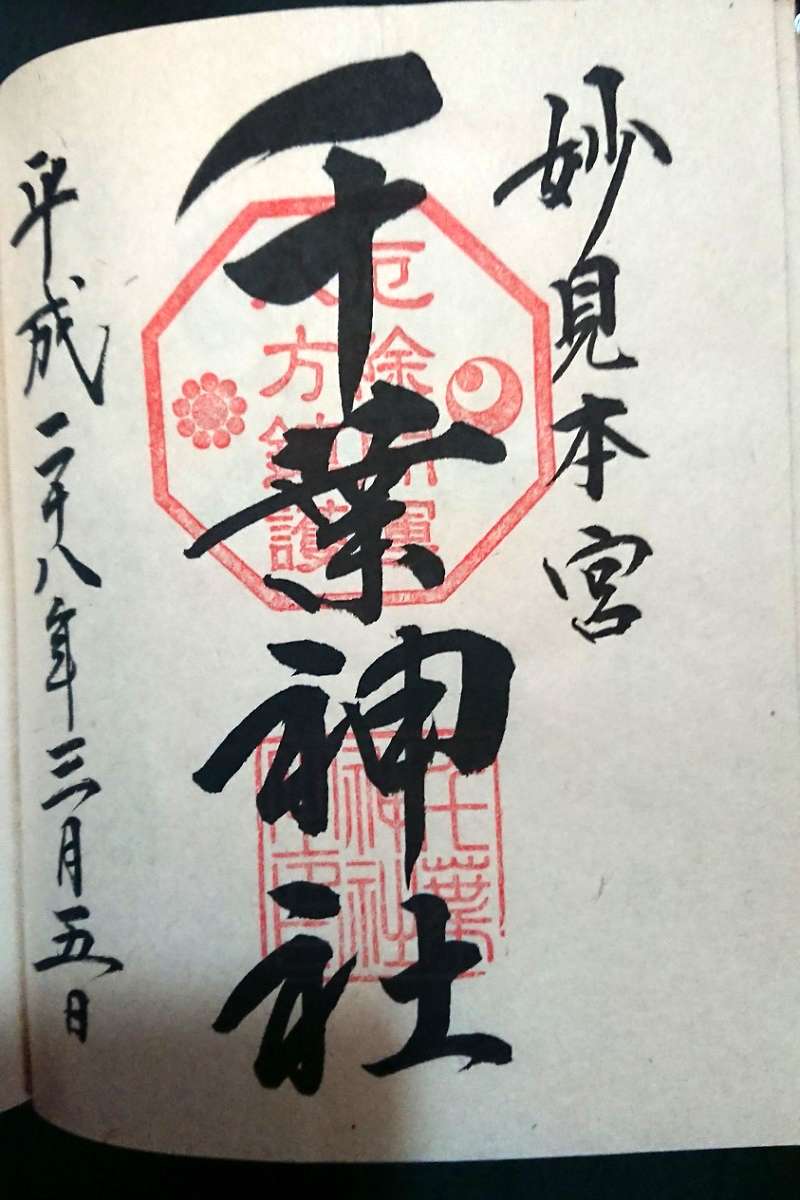 妙見本宮
厄除開運
八方鎮護
千葉神社
千葉
神社
平成二十八年三月五日